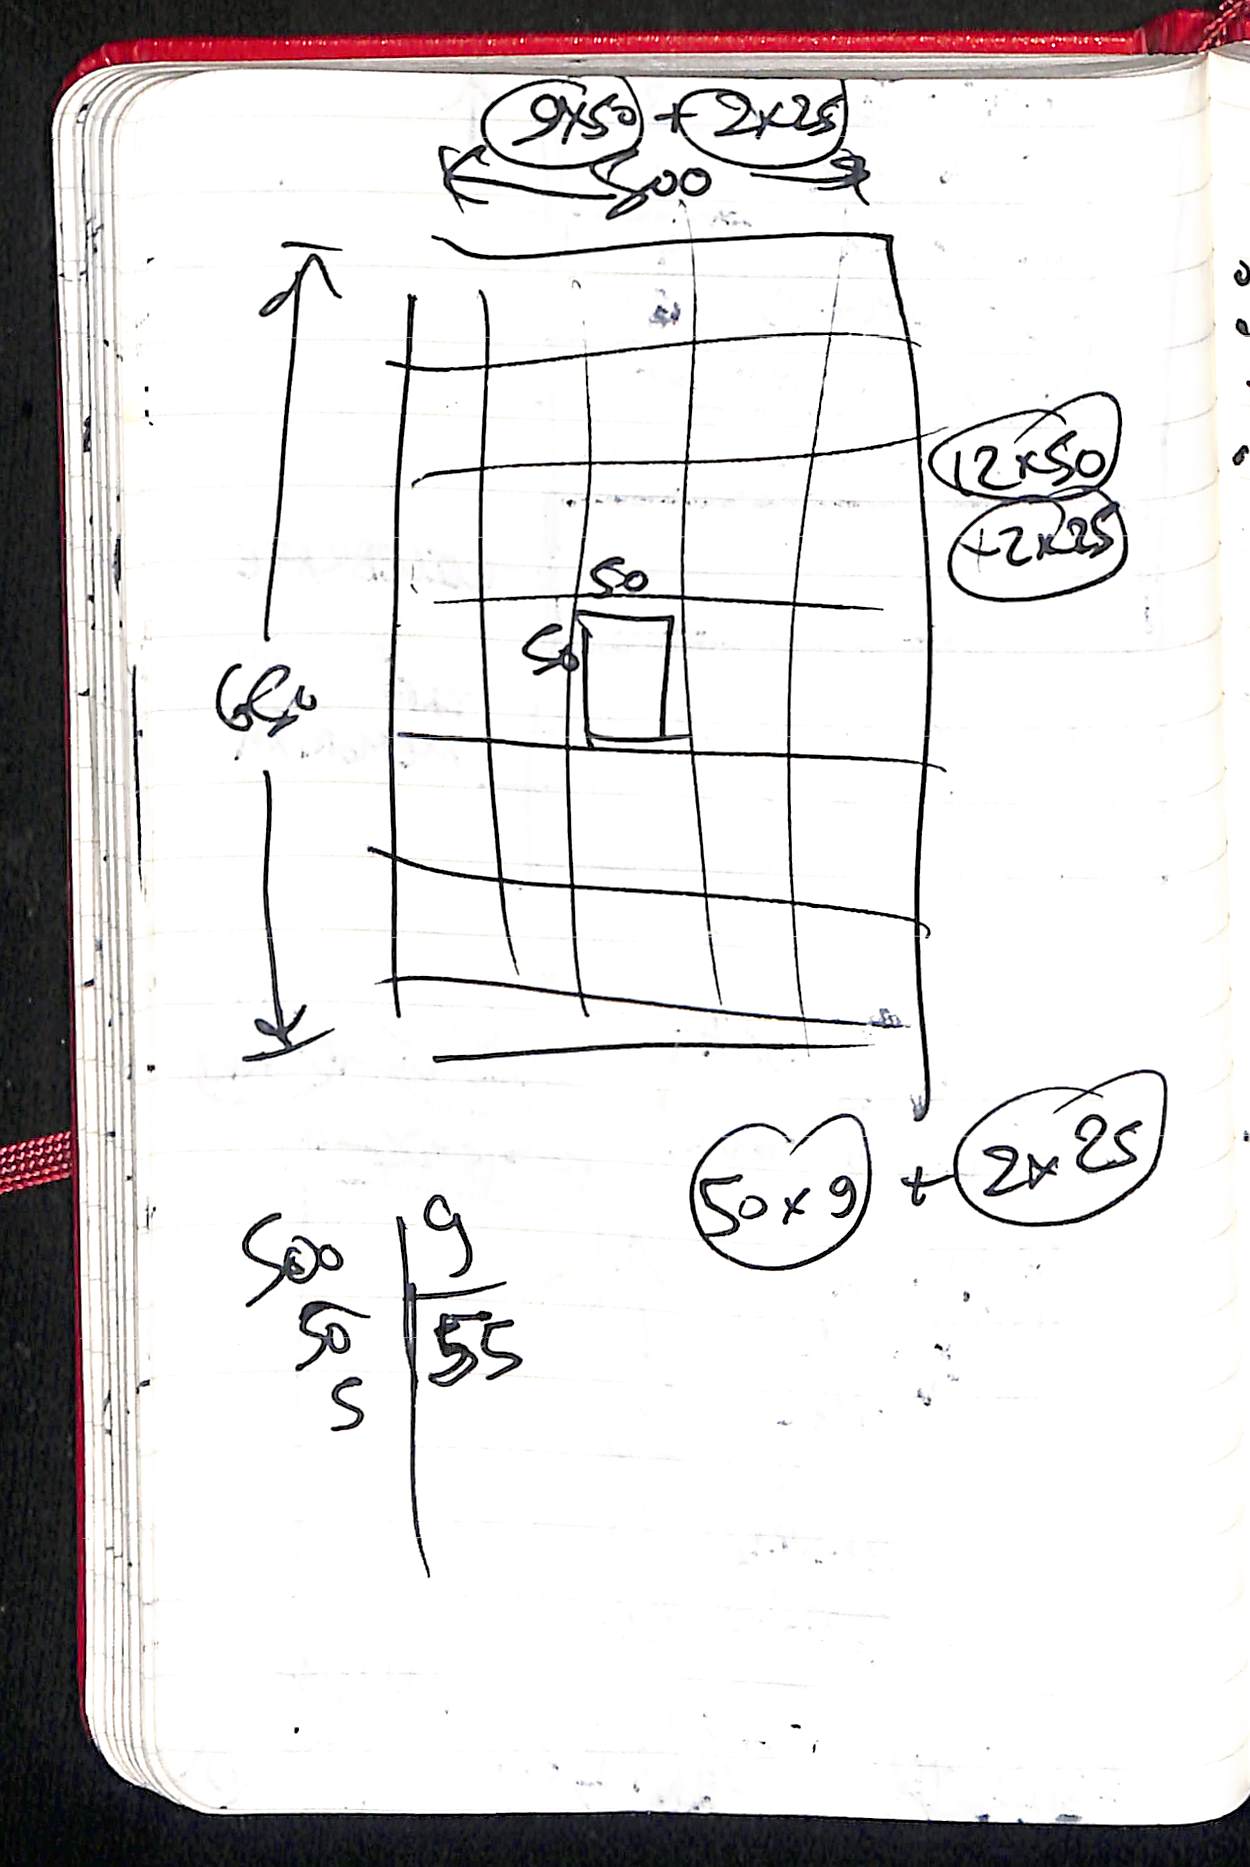 9x50 + 2x25
500
12x50
+2x25
50
50
650
50 x 9 + 2x 25
500 | 9
50 | 55
5